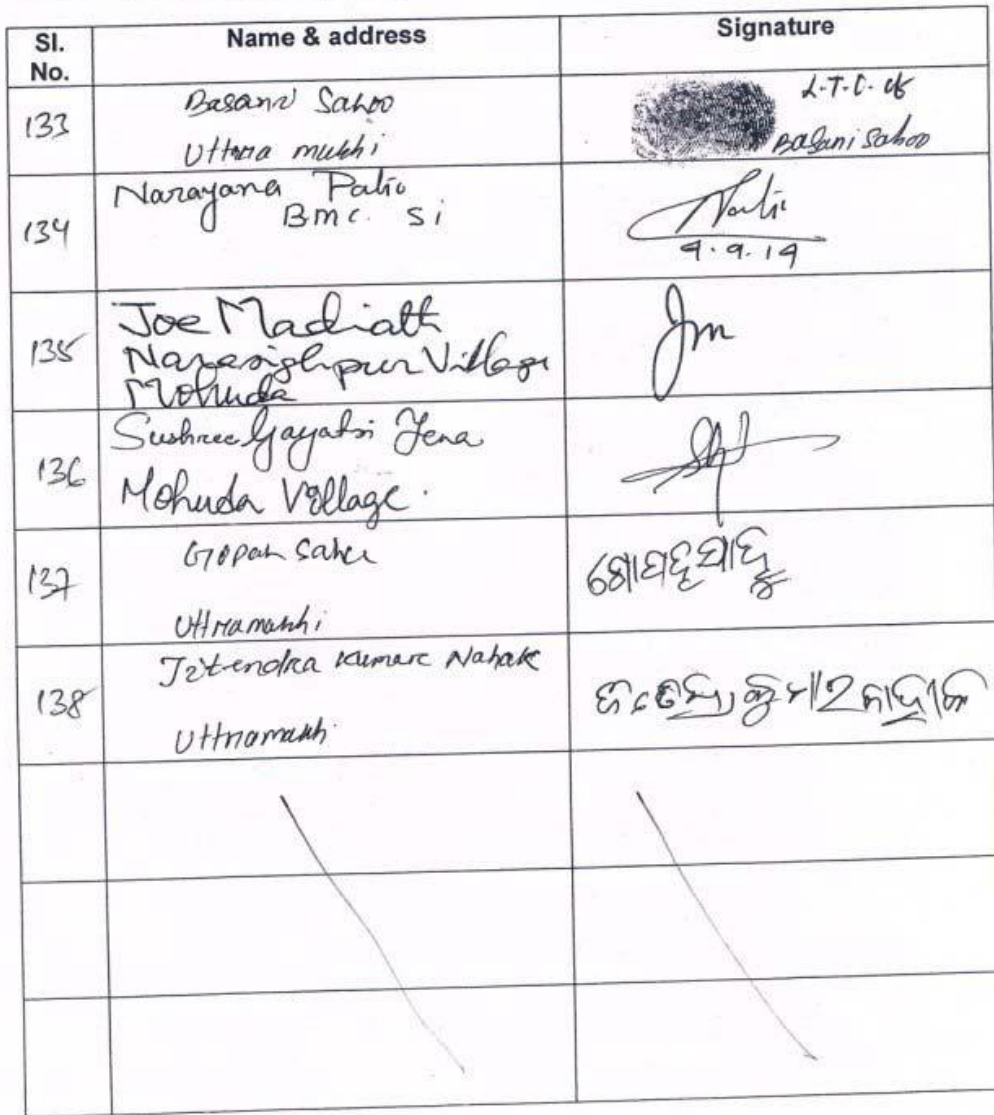 Sl. No. Name & address Signature
133 Basani Sahoo
Uttara mukhi
L.T.I. of
Basani Sahoo
134 Narayana Patro
BMC. Si
9.9.19
135 Joe Madiath
Narasighpur Village
Mohuda
Jm
136 Sushree Gayatri Jena
Mohuda Village.
137 Gopal Sahu
ଗୋପାଳ ସାହୁ
138 Jitendra Kumar Nahak